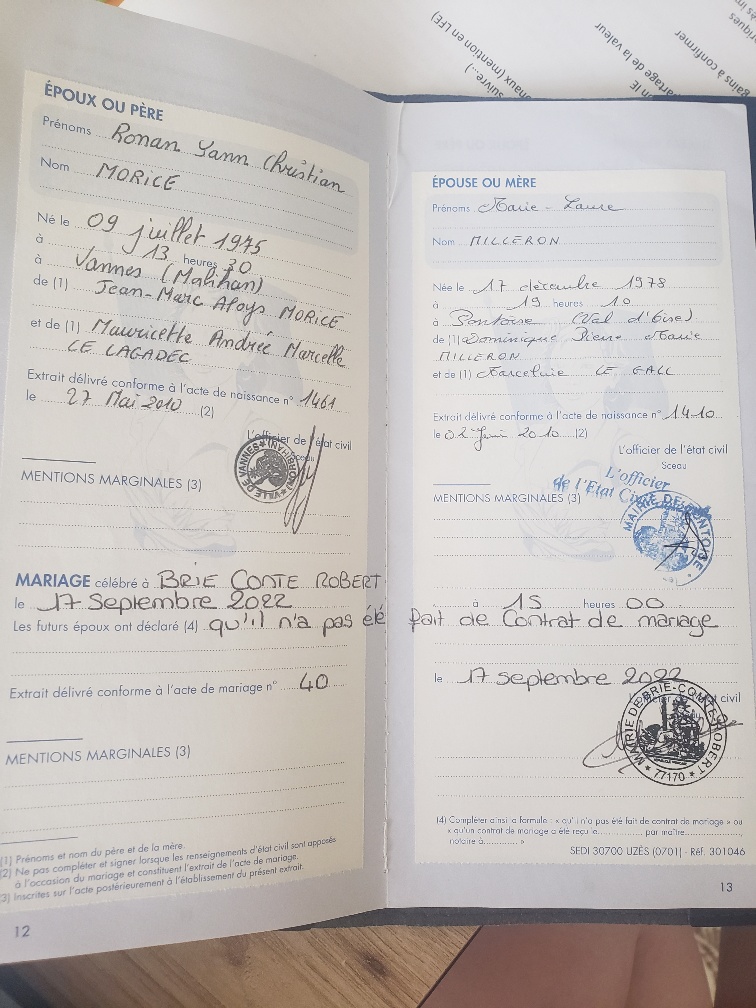 gains à confirmer
artage de la valeur
naux (mention en LFE)
suivre...)
ÉPOUX OU PÈRE
Prénoms Ronan Yann Christian
Nom MORICE
Né le 09 juillet 1975
à 13 heures 30
à Vannes (Mobihan)
de (1) Jean-Marc Aloys MORICE
et de (1) Mauricette Andrée Marcelle
LE LAGADEC
Extrait délivré conforme à l'acte de naissance n° 1461
le 27 Mai 2010 (2)
L'officier de l'état civil
Sceau
VILLE DE VANNES (MORBIHAN)
MENTIONS MARGINALES (3)
MARIAGE célébré à BRIE COMTE ROBERT
le 17 Septembre 2022
Les futurs époux ont déclaré (4) qu'il n'a pas été
Extrait délivré conforme à l'acte de mariage n° 40
MENTIONS MARGINALES (3)
(1) Prénoms et nom du père et de la mère.
(2) Ne pas compléter et signer lorsque les renseignements d'état civil sont apposés
à l'occasion du mariage et constituent l'extrait de l'acte de mariage.
(3) Inscrites sur l'acte postérieurement à l'établissement du présent extrait.
12
ÉPOUSE OU MÈRE
Prénoms Marie-Laure
Nom MILLERON
Née le 17 décembre 1978
à 19 heures 10
à Pontoise (Val d'Oise)
de (1) Dominique Pierre Marie
MILLERON
et de (1) Marceline LE GALL
Extrait délivré conforme à l'acte de naissance n° 1410
le 02 Juin 2010 (2)
L'officier de l'état civil
Sceau
L'officier
de l'Etat Civil
MAIRIE DE PONTOISE
MENTIONS MARGINALES (3)
à 15 heures 00
fait de Contrat de mariage
le 17 septembre 2022
L'officier de l'état civil
Sceau
MAIRIE DE BRIE-COMTE-ROBERT
77170
(4) Compléter ainsi la formule : « qu'il n'a pas été fait de contrat de mariage » ou
« qu'un contrat de mariage a été reçu le............ par maître............,
notaire à............ »
SEDI 30700 UZÈS (0701) - Réf. 301046
13